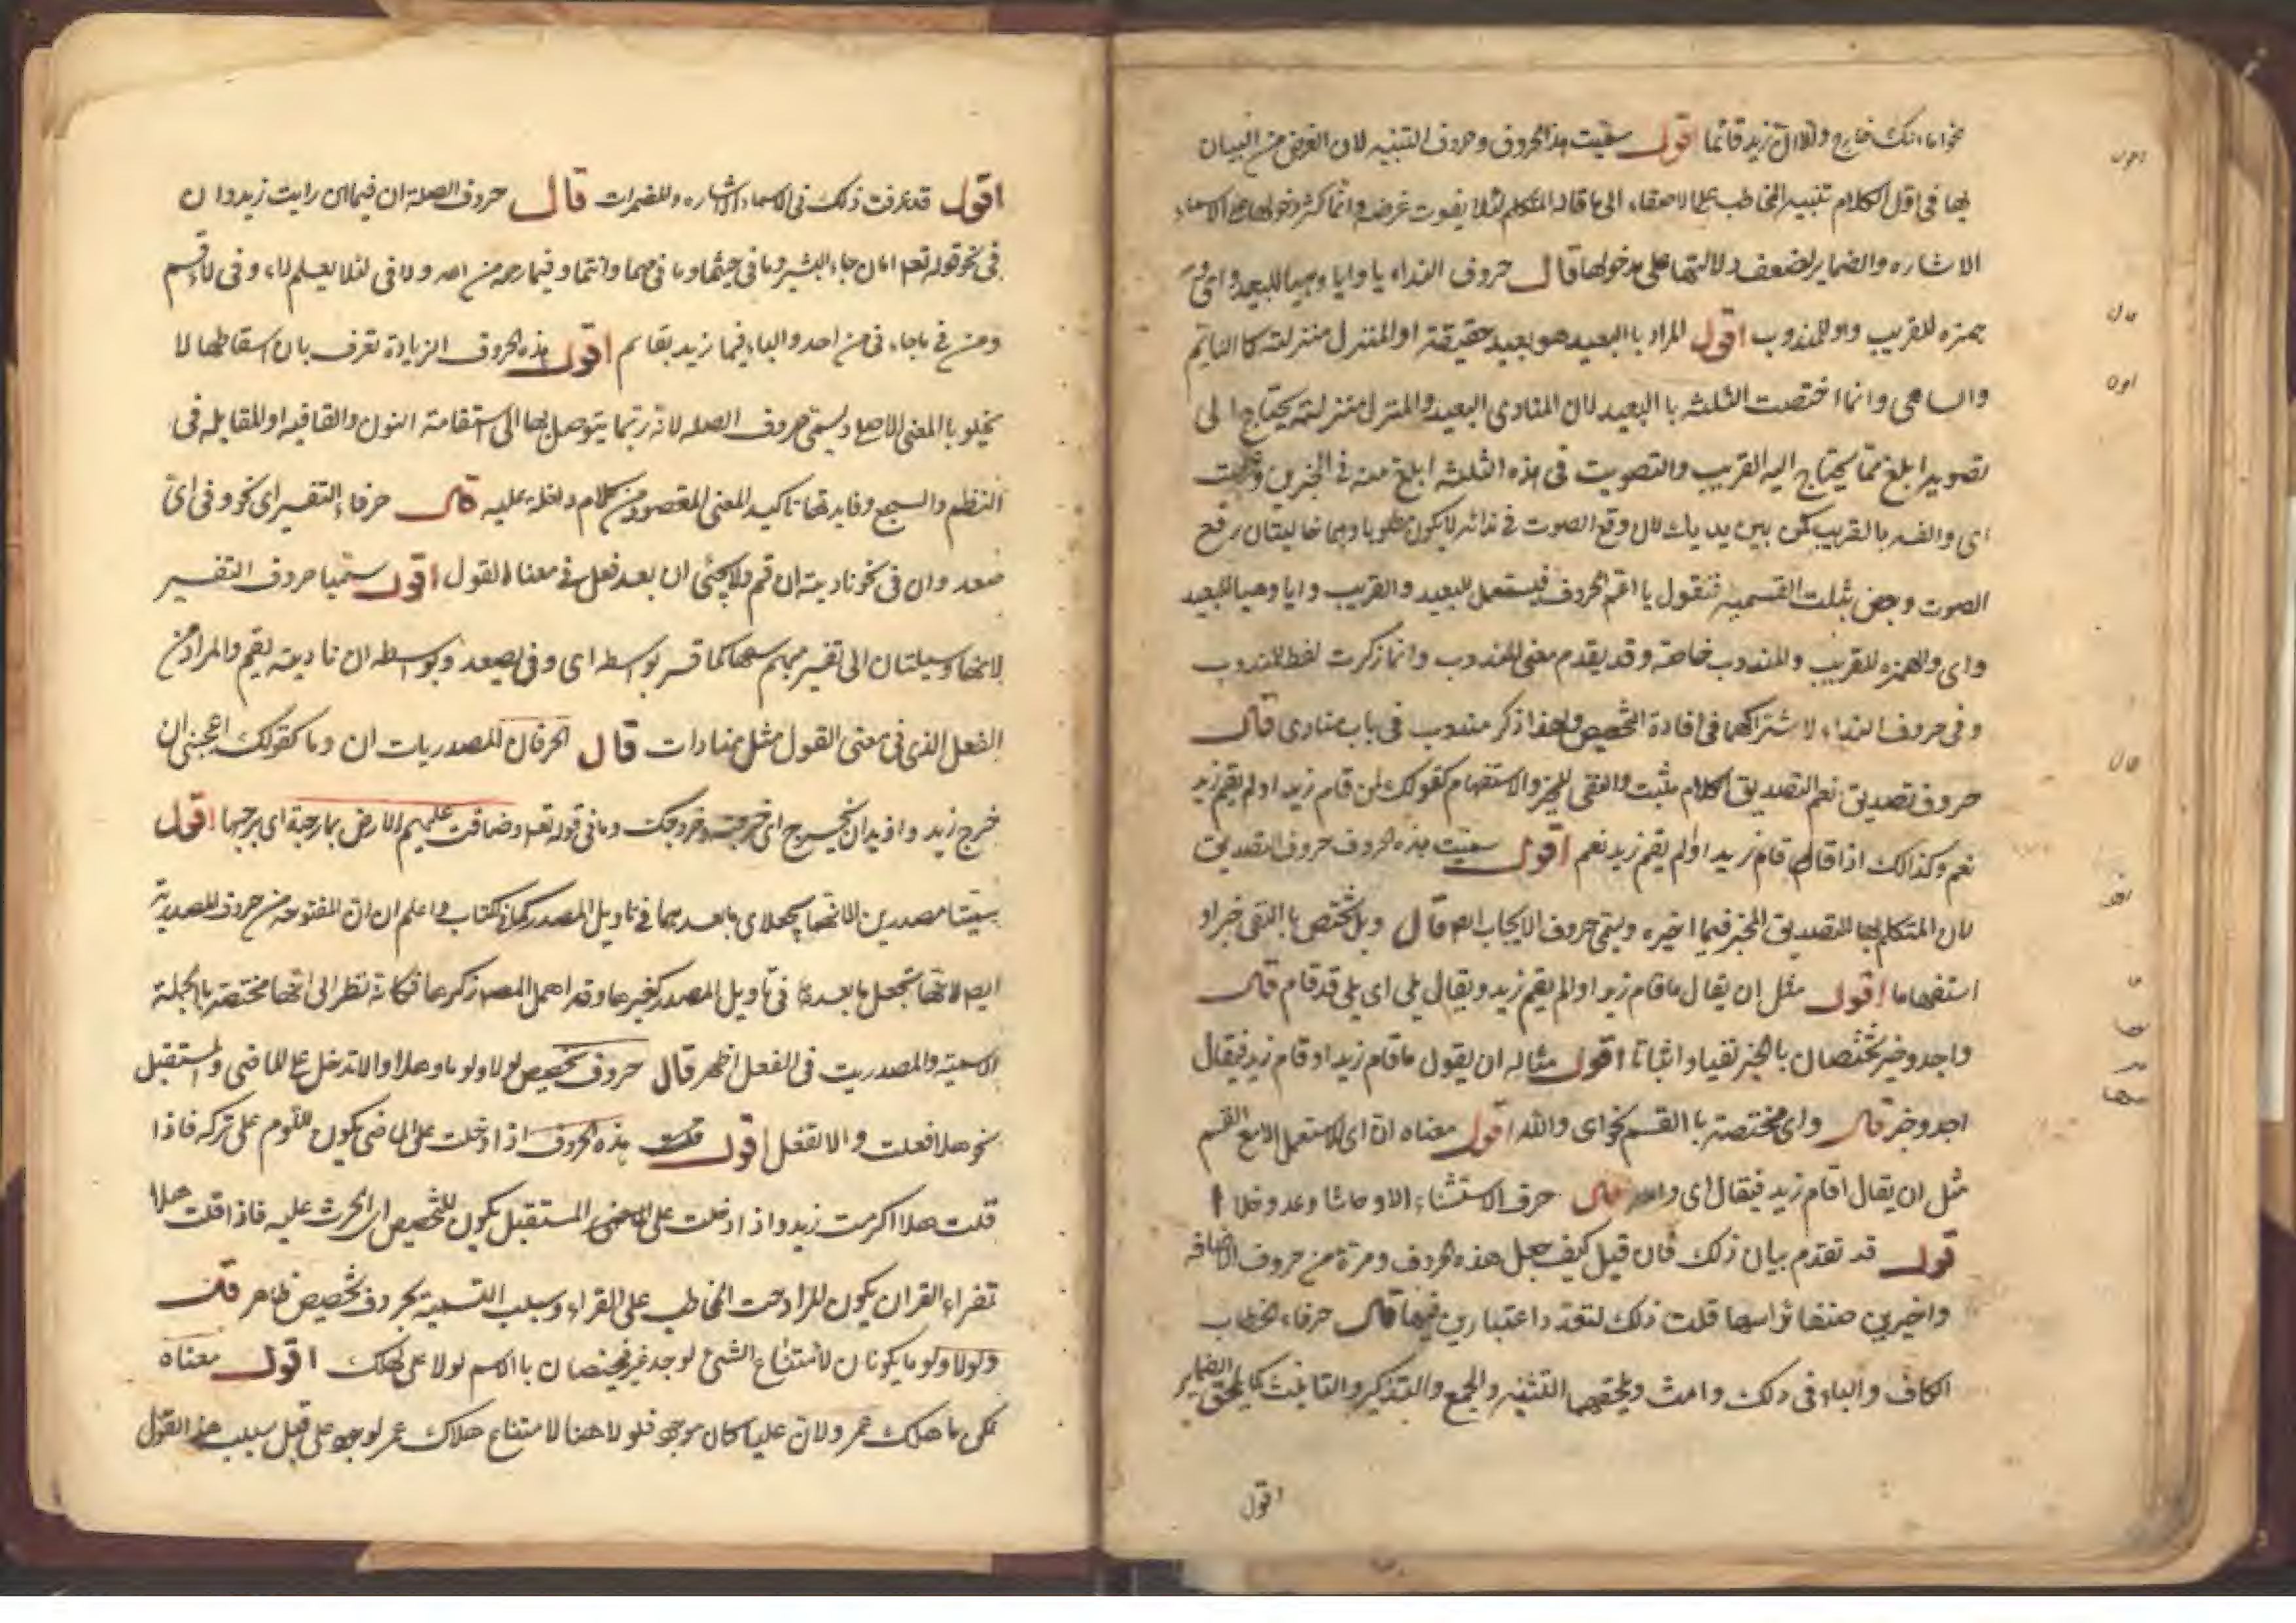 نحو اما انك خارج والا ان زيد قائما اقول سميت هذه الحروف وحروف التنبيه لان الغرض من البيان
بها فى اول الكلام تنبيه المخاطب على الاصغاء الى ما قاله المتكلم لئلا يفوت غرضه وانما كثر دخولها على الاسماء
الاشاره والضماير لضعف دلالتها على مدخولها قال حروف النداء يا وايا وهيا للبعيد واى و
همزه للقريب و وا للمندوب اقول المراد با البعيد هو بعيد حقيقة او المنزل منزلته كا النائم
والساهى وانما اختصت الثلثه با البعيد لان المنادى البعيد والمنزل منزلته يحتاج الى
تصويت ابلغ مما يحتاج اليه القريب والتصويت فى هذه الثلثه ابلغ منه فى
اى والهمزه بالقريب كمن بين يديك لان رفع الصوت فى ندائه لا يكون مطلوبا وهما خاليتان رفع
الصوت وبعض يثلث القسميه فيقول يا اعم الحروف فيستعمل للبعيد والقريب وايا وهيا للبعيد
واى والهمزه للقريب والمندوب خاصة وقد يقدم معنى المندوب وانما ذكرت لفظ المندوب
وفى حروف النداء لاشتراكهما فى افادة التخصيص ولهذا ذكر مندوب فى باب منادى قال
حروف تصديق نعم لتصديق الكلام مثبت والنفى للخبر والاستفهام كقولك لمن قام زيد او لم يقم زيد
نعم وكذالك اذا قال اقام زيد او الم يقم زيد نعم اقول سميت هذه الحروف حروف التصديق
لان المتكلم بها للتصديق المخبر فيما اخبره ويسمى حروف الايجاب ايضا قال وبلى تختص با النفى خبرا و
استفهاما اقول مثل ان يقال ما قام زيد او الم يقم زيد ويقال بلى اى بلى قد قام قال
واجد وخبر يختصان بالخبر نفيا واثباتا اقول مثاله ان يقول ما قام زيد او قام زيد فيقال
اجد وخبر قال واى مختصة با القسم نحو اى والله اقول معناه ان اى لا يستعمل الا مع القسم
مثل ان يقال اقام زيد فيقال اى والله قال حرف الاستثناء الا و حاشا وعدا وخلا ا
قول قد تقدم بيان ذلك فان قيل كيف جعل هذه الحروف ومرة من حروف الاضافه
واخيرين صنفا برأسها قلت ذلك لتعدد اعتبارين فيها قال حرفاء الخطاب
الكاف والتاء فى ذلك وانت ويلحقهما التثنيه والجمع والتذكير والتانيث كما يلحق الضماير
اقول
اقول قد عرفت ذلك فى الاسماء الاشاره والمضمرات قال حروف الصله ان فيما ان رايت زيد وان
فى نحو قوله تعم اما ان جاء البشير وما فى حيثما وما فى مهما وانتما و فيما رحمة من الله ولا فى لئلا يعلم لا، وفى لا اقسم
ومن فى ما جاء فى من احد والباء فيما زيد بقائم اقول هذه الحروف الزيادة تعرف بان اسقاطها لا
يخلو با المعنى الاصلى ويسمى حروف الصله لانه ربما يتوصل بها الى استقامة الوزن والقافيه او المقابله فى
النظم والسجع وفايدتها تاكيد المعنى المقصود من كلام داخلة عليه قال حرفاء التفسير اى نحو وفى اى
صعد وان فى نحو ناديته ان قم ولا يجئى ان بعد فعل فى معناه القول اقول سميا حروف التفسير
لانهما وسيلتان الى تفسير مبهم كما فسر بواسطه اى وفى بصعد وبواسطه ان ناديته بقم والمراد من
الفعل الذى فى معنى القول مثل منادات قال الحرفان المصدريات ان وما كقولك اعجبنى ان
خرج زيد واريد ان يخرج اى خروجه وخروجك وما فى قوله تعم وضاقت عليهم الارض بما رحبت اى برحبها اقول
سميتا مصدرين لانهما يجعلان ما بعدهما فى تاويل المصدر كما فى كتاب واعلم ان ان المفتوحه من حروف المصدرية
ايضا لانها تجعل ما بعدها فى تاويل المصدر كغيرها وقد اهمل المصنف ذكرها فكانه نظر الى انها مختصة با الجملة
الاسمية والمصدريت فى الفعل اظهر قال حروف تخصيص لولا ولوما وهلا والا تدخل على الماضى والمستقبل
نحو هلا فعلت والا تفعل اقول قلت هذه الحروف اذا دخلت على الماضى يكون للوم على تركه فاذا
قلت هلا اكرمت زيد واذا دخلت على المستقبل يكون للتخصيص اى الحرث عليه فاذا قلت هلا
تقراء القران يكون المراد حث المخاطب على القراء وسبب التسمية بحروف تخصيص ظاهر قال
ولولا ولوما يكونان لامتناع الشئ لوجد غيره فيختصان با الاسم لولا على لهلك اقول معناه
لكن ما هلك عمر ولان عليا كان موجود فلولا هنا لامتناع هلاك عمر لوجود على قيل سبب هذا القول